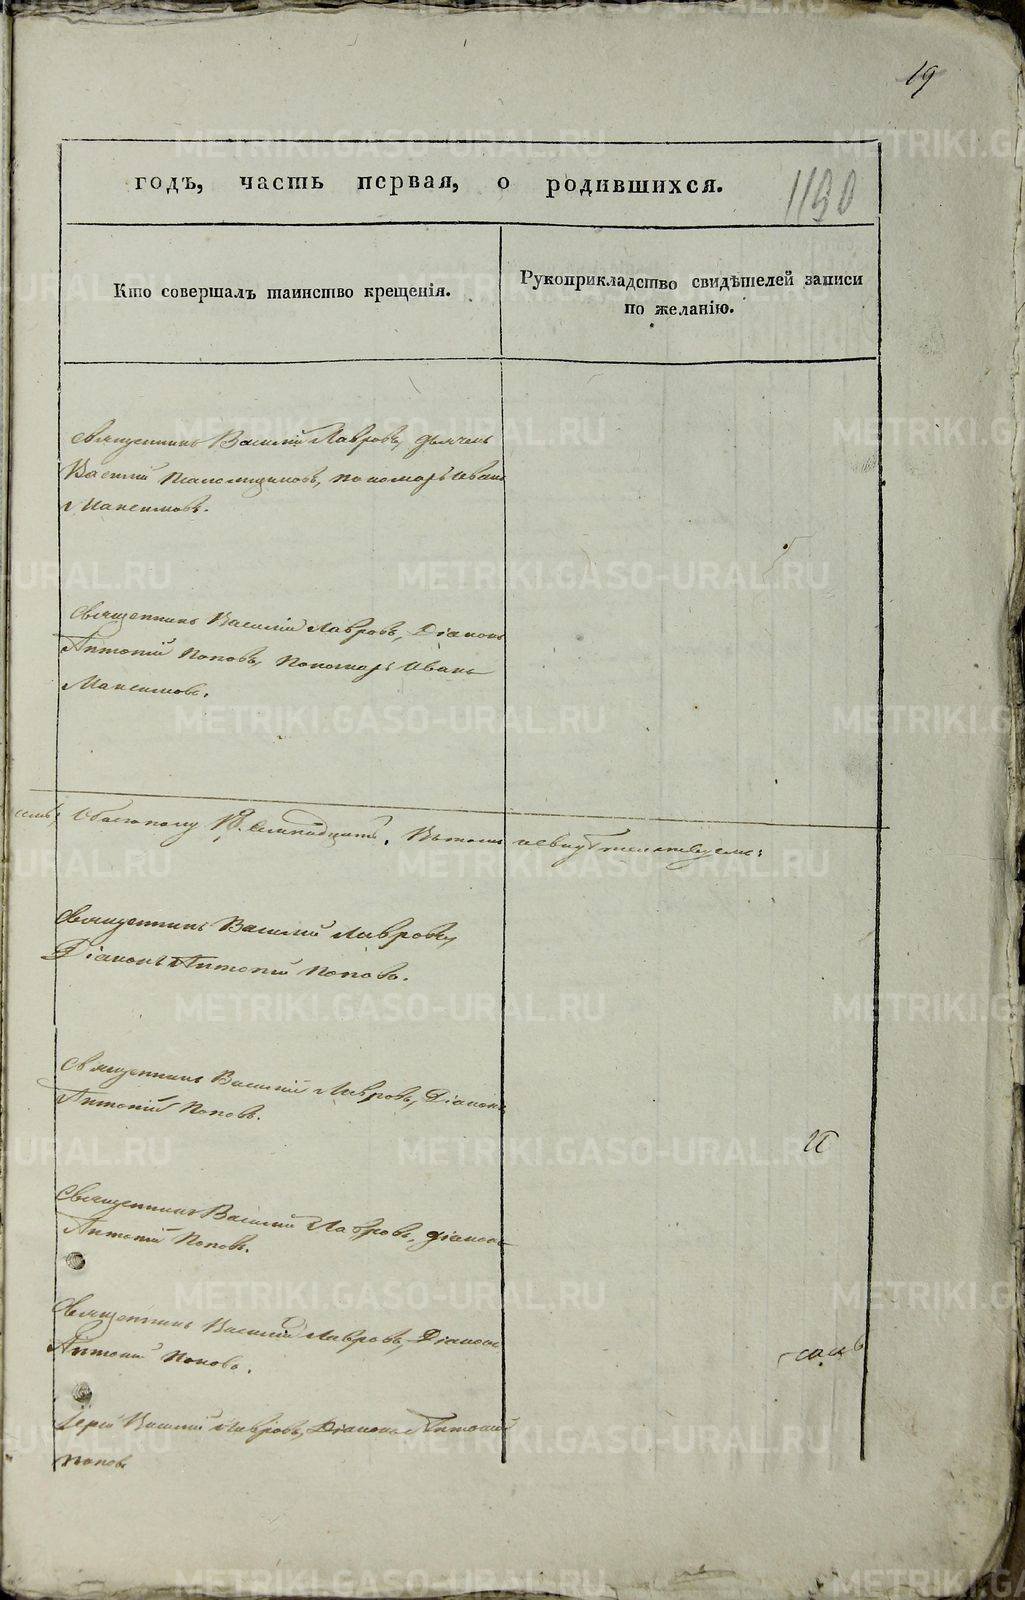 19
годъ, часть первая, о родившихся.
1190
Кто совершалъ таинство крещенія.
Рукоприкладство свидѣтелей записи
по желанію.
Священникъ Василій Лавровъ, дьячекъ
Василій пономарь Иванъ
Максимовъ.
Священникъ Василій Лавровъ, Діаконъ
Антоній Поповъ, Пономарь Иванъ
Максимовъ.
Обоего полу
Священникъ Василій Лавровъ,
Діаконъ Антоній Поповъ.
Священникъ Василій Лавровъ, Діаконъ
Антоній Поповъ.
Священникъ Василій Лавровъ, діаконъ
Антоній Поповъ.
Священникъ Василій Лавровъ, Діаконъ
Антоній Поповъ.
Іерей Василій Лавровъ, Діаконъ Антоній
Поповъ
METRIKI.GASO-URAL.RU